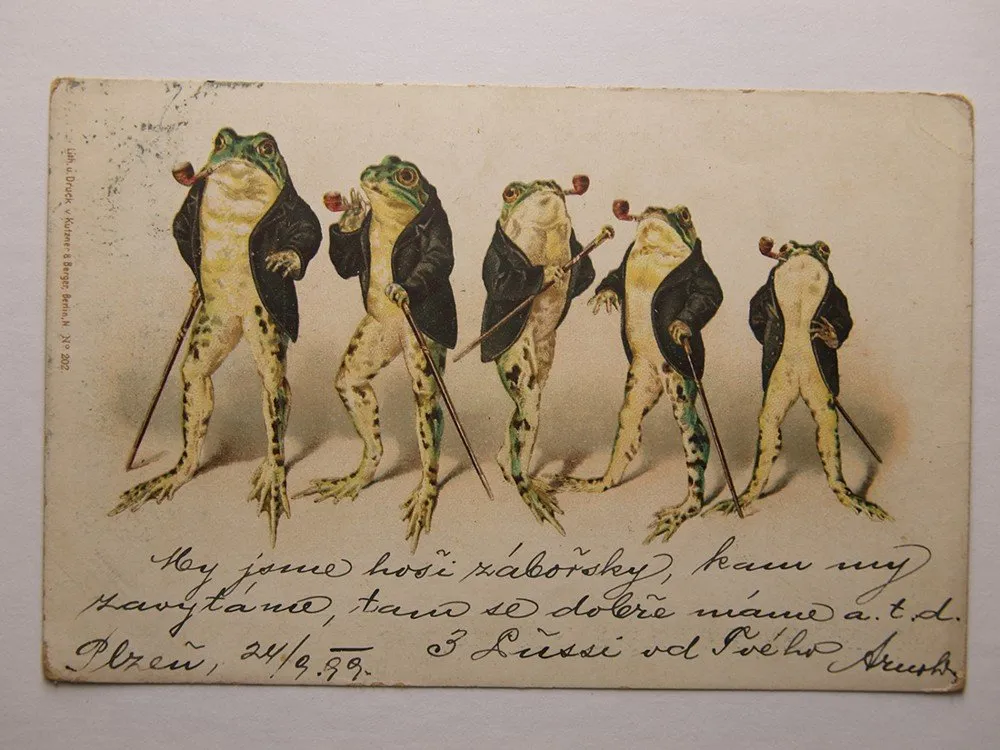 Lith. u. Druck v. Kutzner & Berger, Berlin, N. Nº 202.
My jsme hoši zábořsky, kam my
zavytáme, tam se dobře máme a. t. d.
Plzeň, 24/9. 99. 3 Lůssi od Tvého Arnold.